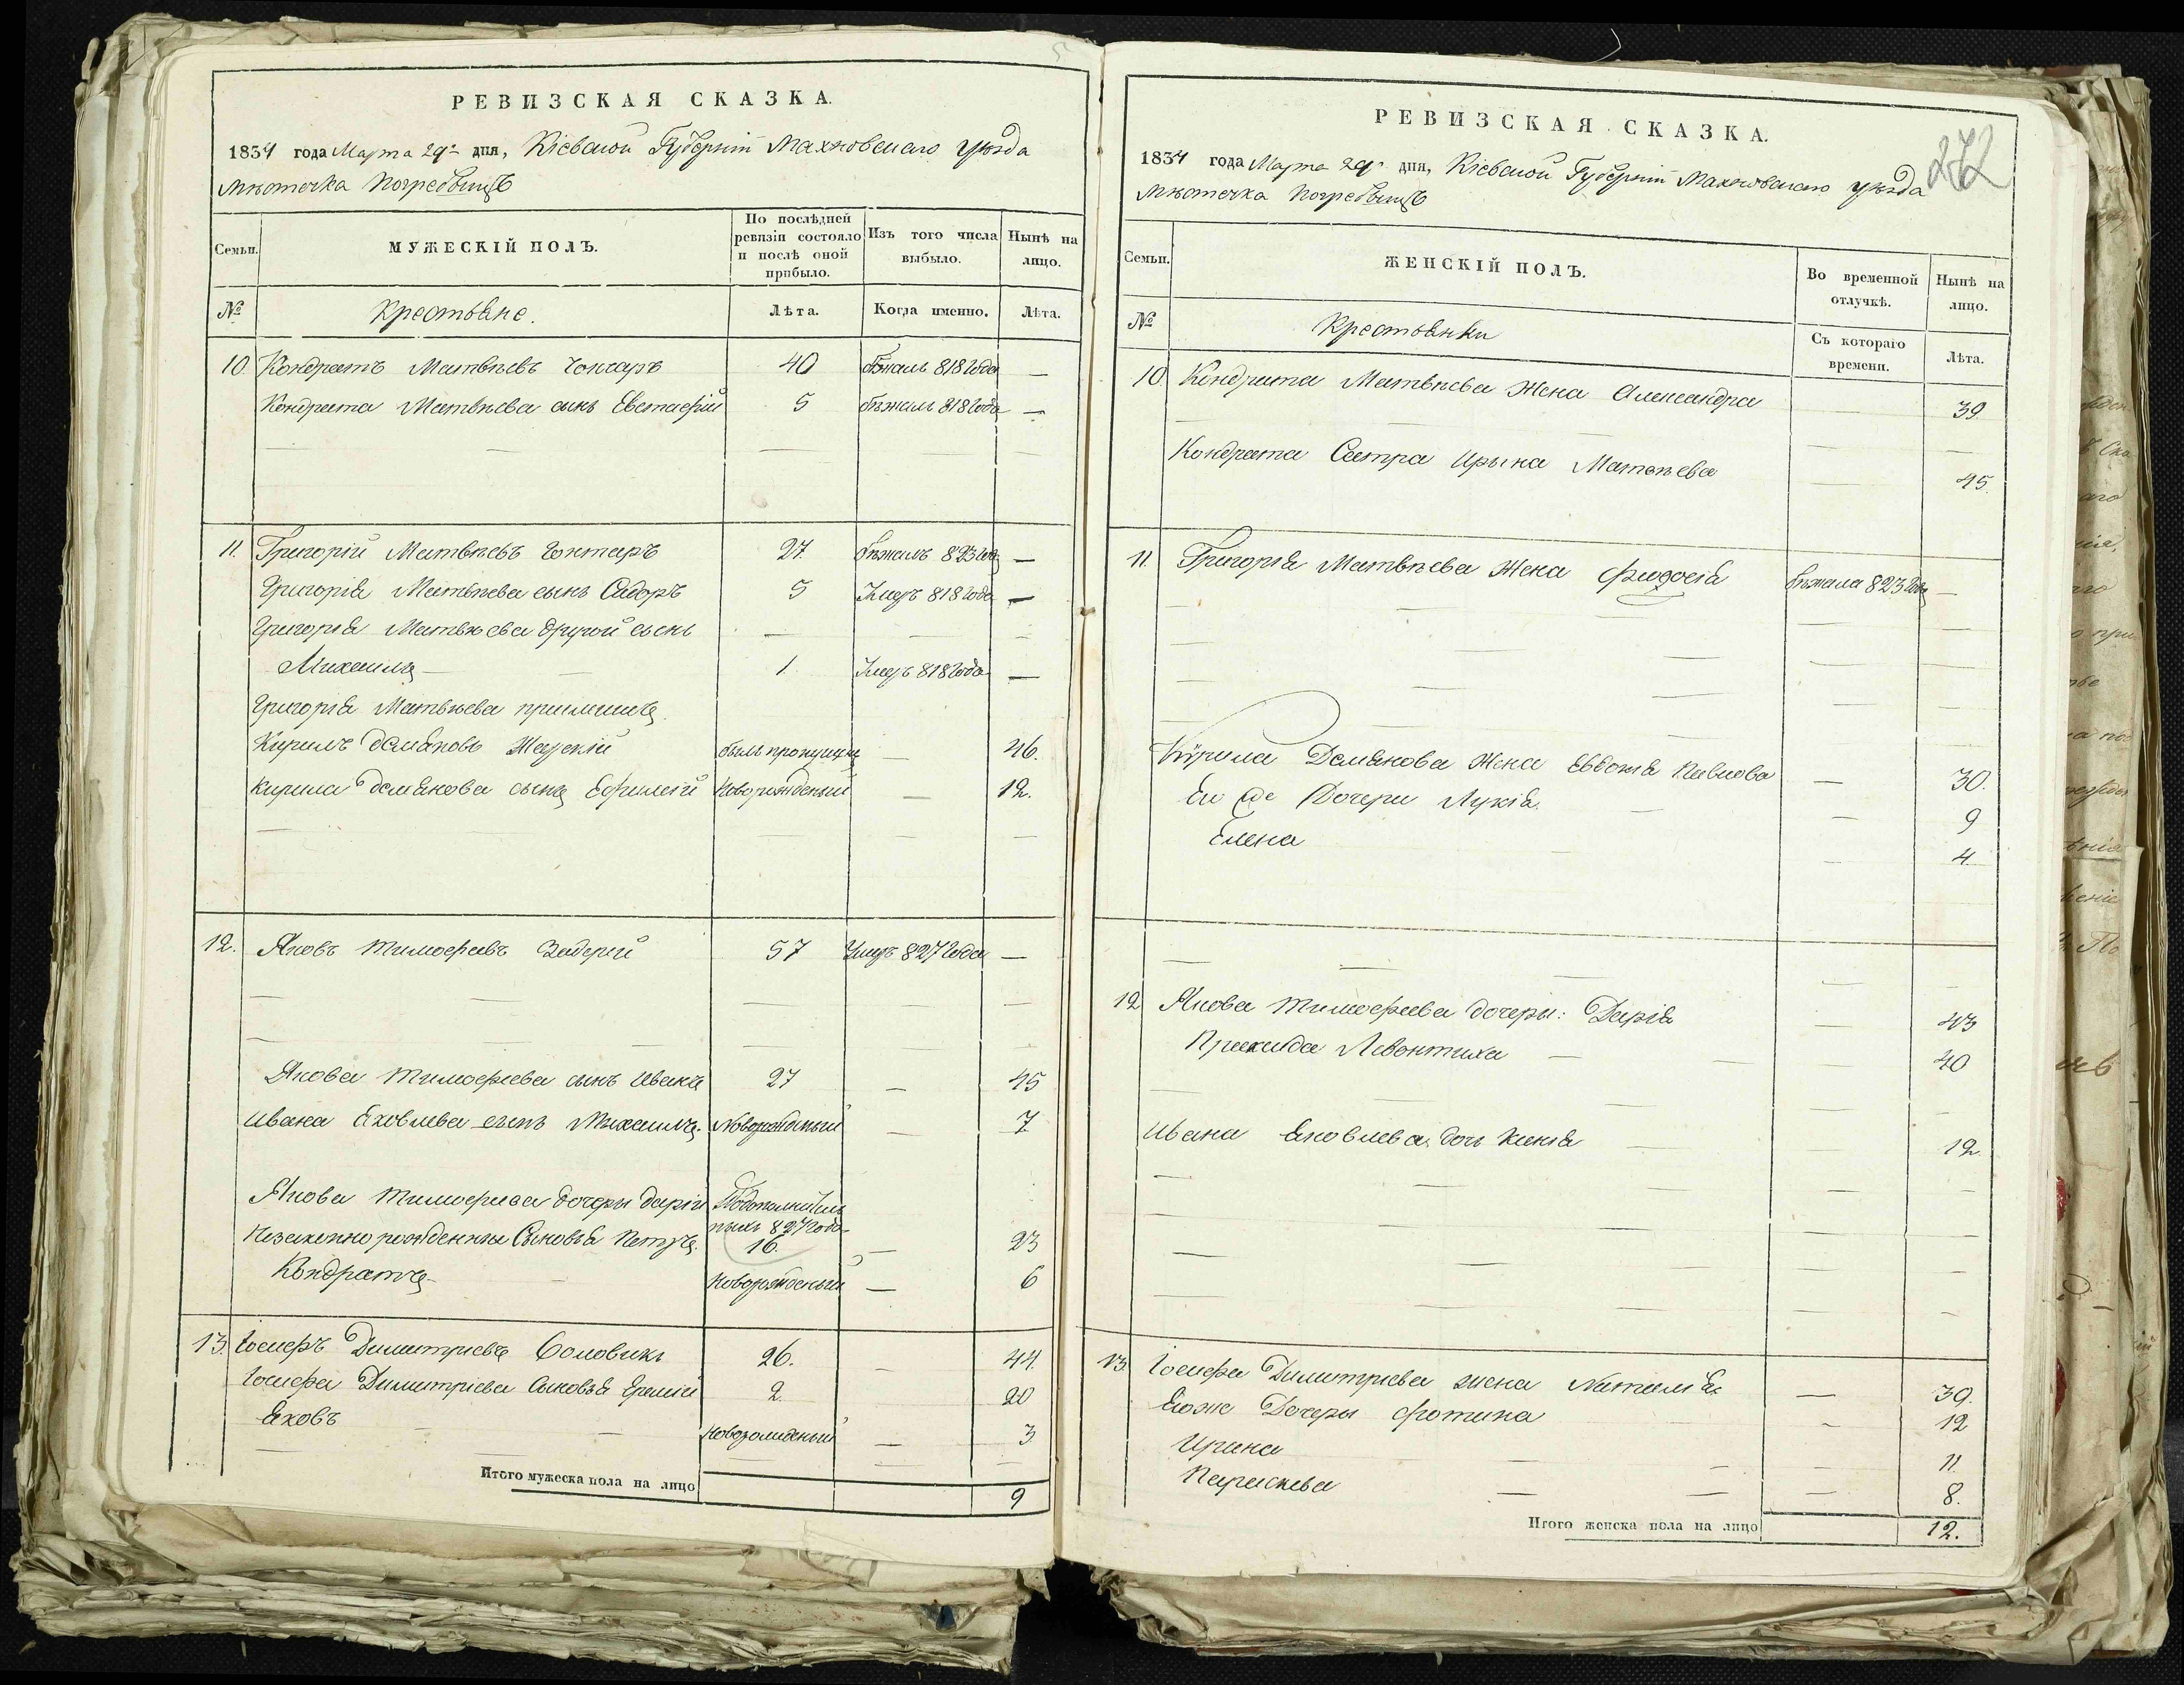 РЕВИЗСКАЯ СКАЗКА.
1834 года Марта 29го дня, Кіевской Губерніи Махновскаго уѣзда
мѣстечка Погребыщъ
Семьи. МУЖЕСКІЙ ПОЛЪ. По послѣдней ревизіи состояло и послѣ оной прибыло. Изъ того числа выбыло. Нынѣ на лицо.
№ Крестьяне. Лѣта. Когда именно. Лѣта.
10. Кондратъ Матвѣевъ Гончаръ 40 бѣжалъ 818 года —
Кондрата Матвѣева сынъ Евстафій 5 бѣжалъ 818 года —
11. Григорій Матвѣевъ Гонтаръ 27. бѣжалъ 823 года —
Григорія Матвѣева сынъ Сидоръ 5 Умеръ 818 года —
Григорія Матвѣева другой сынъ
Михаилъ — 1. Умеръ 818 года —
Григорія Матвѣева приимышъ
Кирилъ Демяновъ был пропущенъ — 46.
Кирила Демянова сынъ Ефимій Новорожденый — 12.
12. Яковъ Тимофеевъ Задерей 57 Умеръ 827 года —
Якова Тимофеева сынъ Иванъ 27 — 45
Ивана Яковлева сынъ Михаилъ Новорожденый — 7.
Якова Тимофеева дочери Даріи
Незаконно рожденныи Сыновья Петръ 16. — 23
Кондратъ — Новорожденый — 6
13. Іосифъ Димитріевъ Соловикъ 26. — 44.
Іосифа Димитріева Сыновья Еремій 2. 20
Яковъ — Новорожденый — 3
Итого мужеска пола на лицо 9
РЕВИЗСКАЯ СКАЗКА.
272
1834 года Марта 29го дня, Кіевской Губерніи Махновскаго уѣзда
мѣстечка Погребыщъ
Семьи. ЖЕНСКІЙ ПОЛЪ. Во временной отлучкѣ. Нынѣ на лицо.
№ Крестьянки Съ котораго времени. Лѣта.
10. Кондрата Матвѣева Жена Александра 39.
Кондрата Сестра Ирына Матвѣева — 45.
11. Григорія Матвѣева Жена Феодосія бѣжала 823 года —
Кирила Демянова Жена Евдокія Павлова — 30.
Ея же Дочери Лукія — 9
Елена — 4.
12. Якова Тимофеева дочеры: Дарія — 43
— 40
Ивана Яковлева дочь Ксенія 12.
13. Іосифа Димитріева жена Наталія — 39.
Еяже Дочеры Фотина — 12
Ирина — 11.
Параскева — 8.
Итого женска пола на лицо 12.